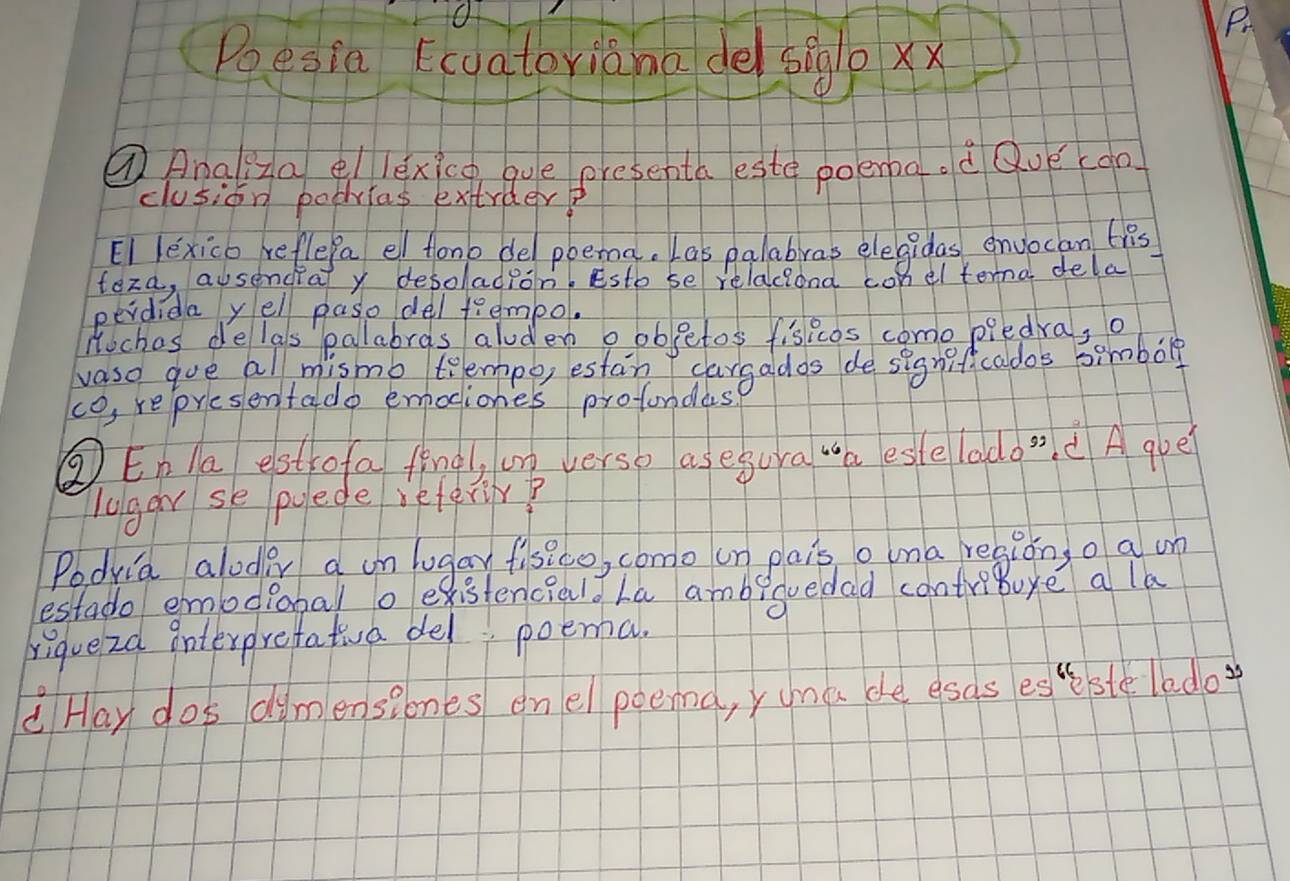 Poesía Ecuatoriana del siglo XX
① Analiza el léxico que presenta este poema. ¿Qué con-
clusión podrías extraer?
El léxico refleja el tono del poema. Las palabras elegidas envocan tris-
teza, ausencia y desolación. Esto se relaciona con el tema dela
pérdida y el paso del tiempo.
Muchas delas palabras aluden o objetos físicos como piedra, o
vaso que al mismo tiempo, están cargados de significados simbóli
co, representado emociones profundas.
② En la estrofa final, un verso asegura “a este lado”. ¿A qué
lugar se puede referir?
Podría aludir a un lugar físico, como un país o una región, o a un
estado emocional o existencial. La ambiguedad contribuye a la
riqueza interpretativa del poema.
¿Hay dos dimensiones en el poema, y una de esas es “este lado”
Pr